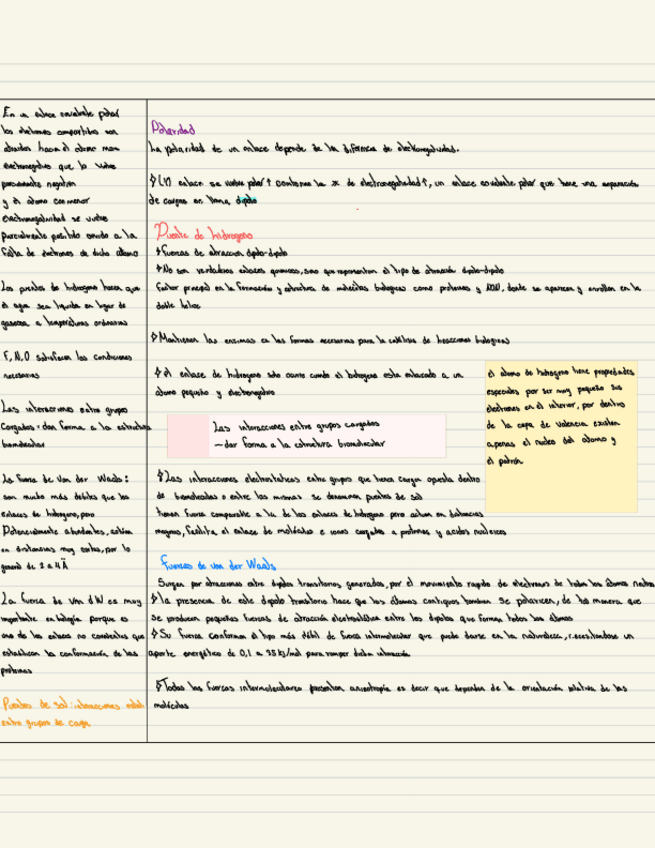 En un enlace covalente polar
los electrones compartidos son
atraidos hacia el atomo mas
electronegativo que lo vuelve
parcialmente negativo
y el atomo con menor
electronegatividad se vuelve
parcialmente positivo debido a la
falta de electrones de dicho atomo
Los puentes de hidrogeno hacen que
el agua sea liquida en lugar de
gaseosa a temperaturas ordinarias
F, N, O satisfacen las condiciones
necesarias
Las interacciones entre grupos
Cargados: dan forma a la estructura
biomolecular
La fuerza de Van der Waals:
son mucho más débiles que los
enlaces de hidrogeno, pero
Potencialmente abundantes, actúan
en distancias muy cortas, por lo
general de 2 a 4 Å
La fuerza de Van d W es muy
importante en biología porque es
uno de los enlaces no covalentes que
estabilizan la conformación de las
proteínas
Puentes de sal: interacciones
entre grupos de carga
Polaridad
La polaridad de un enlace depende de la diferencia de electronegatividad.
Un enlace se vuelve polar ↑ conforme la de electronegatividad ↑, un enlace covalente polar que tiene una separación
de cargas se llama, dipolo
Puente de hidrogeno
fuerzas de atraccion dipolo-dipolo
No son verdaderos enlaces quimicos, sino que representan el tipo de atracción dipolo-dipolo
factor principal en la formación y estructura de moléculas biologicas como proteinas y ADN, donde se aparecen y enrollan en la
doble helice
Mantienen las enzimas en las formas necesarias para la catálisis de reacciones biologicas
el enlace de hidrogeno solo ocurre cuando el hidrogeno esta enlazado a un
atomo pequeño y electronegativo
el atomo de hidrogeno tiene propiedades
especiales por ser muy pequeño sus
electrones en el interior, por dentro
de la capa de valencia existen
apenas el nucleo del atomo y
el protón
Las interacciones entre grupos cargados
~ dar forma a la estructura biomolecular
Las interacciones electrostaticas entre grupos que tienen cargas opuesta dentro
de biomoleculas o entre las mismas se denominan puentes de sal
tienen fuerza comparable a la de los enlaces de hidrogeno pero actuan en distancias
mayores, facilita el enlace de moléculas e iones cargados a proteinas y acidos nucleicos
fuerzas de van der Waals
Surgen por atracciones entre dipolos transitorios generados, por el movimiento rapido de electrones de todos los átomos neutros
la presencia de este dipolo transitorio hace que los átomos contiguos tambien se polaricen, de tal manera que
se producen pequeñas fuerzas de atracción electrostática entre los dipolos que forman todos los átomos
Su fuerza conforman el tipo más débil de fuerza intermolecular que puede darse en la naturaleza, necesitandose un
aporte energético de 0,1 a 35 kJ/mol para romper dicha interacción
Todas las fuerzas intermoleculares presentan anisotropía es decir que dependen de la orientación relativa de las
moléculas